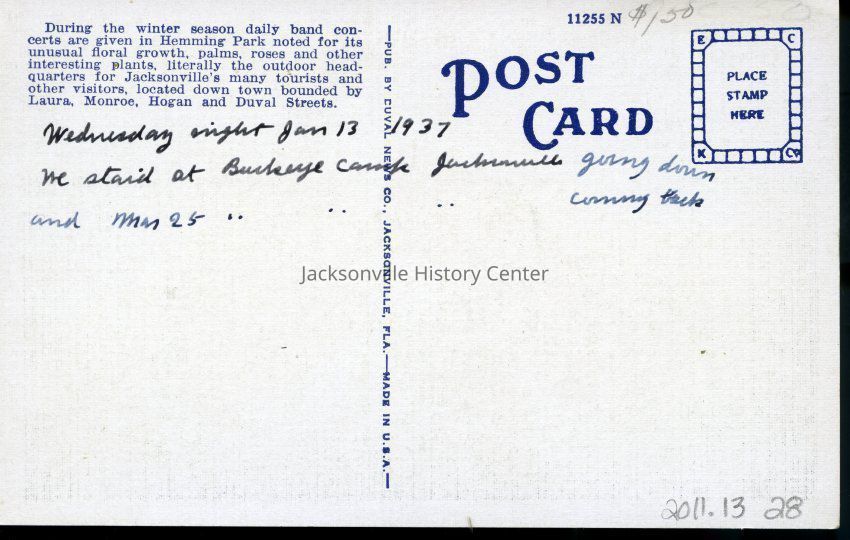 During the winter season daily band con-
certs are given in Hemming Park noted for its
unusual floral growth, palms, roses and other
interesting plants, literally the outdoor head-
quarters for Jacksonville's many tourists and
other visitors, located down town bounded by
Laura, Monroe, Hogan and Duval Streets.
11255 N
$1,50
POST
CARD
E C
PLACE
STAMP
HERE
K Co
Wednesday night Jan 13 1937
We staid at Buckeye Camp Jacksonville going down
and Mar 25 " " " coming back
—PUB. BY DUVAL NEWS CO., JACKSONVILLE, FLA.—MADE IN U.S.A.—
Jacksonville History Center
2011.13 28